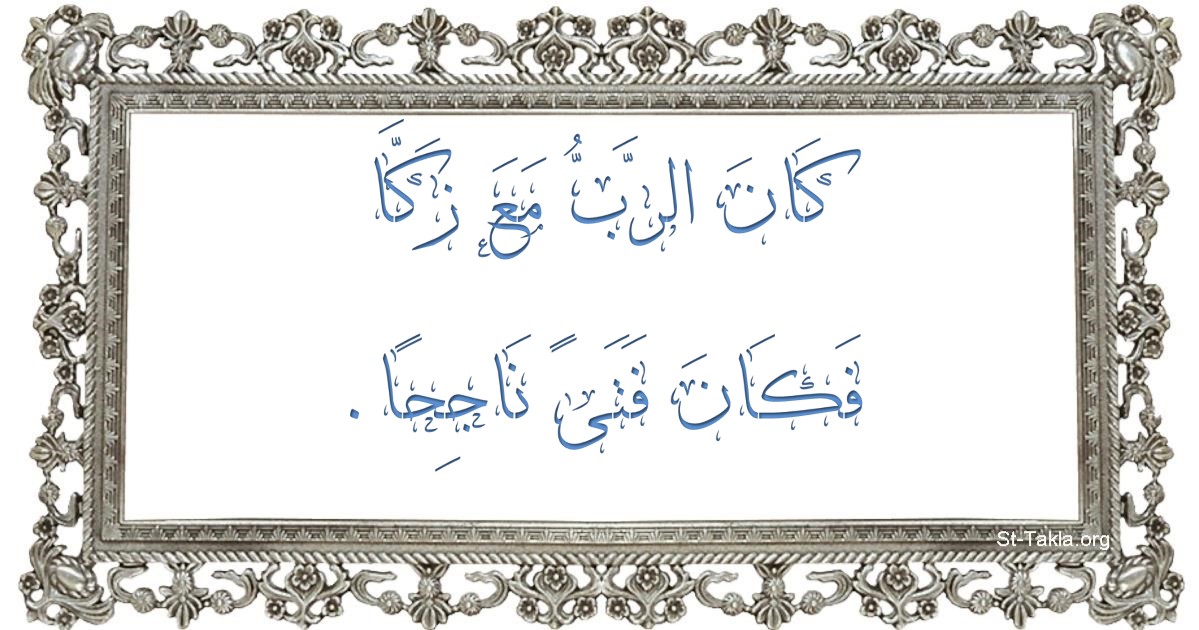 كَانَ الرَّبُّ مَعَ زَكَّا
فَكَانَ فَتَىً نَاجِحًا .
St-Takla.org